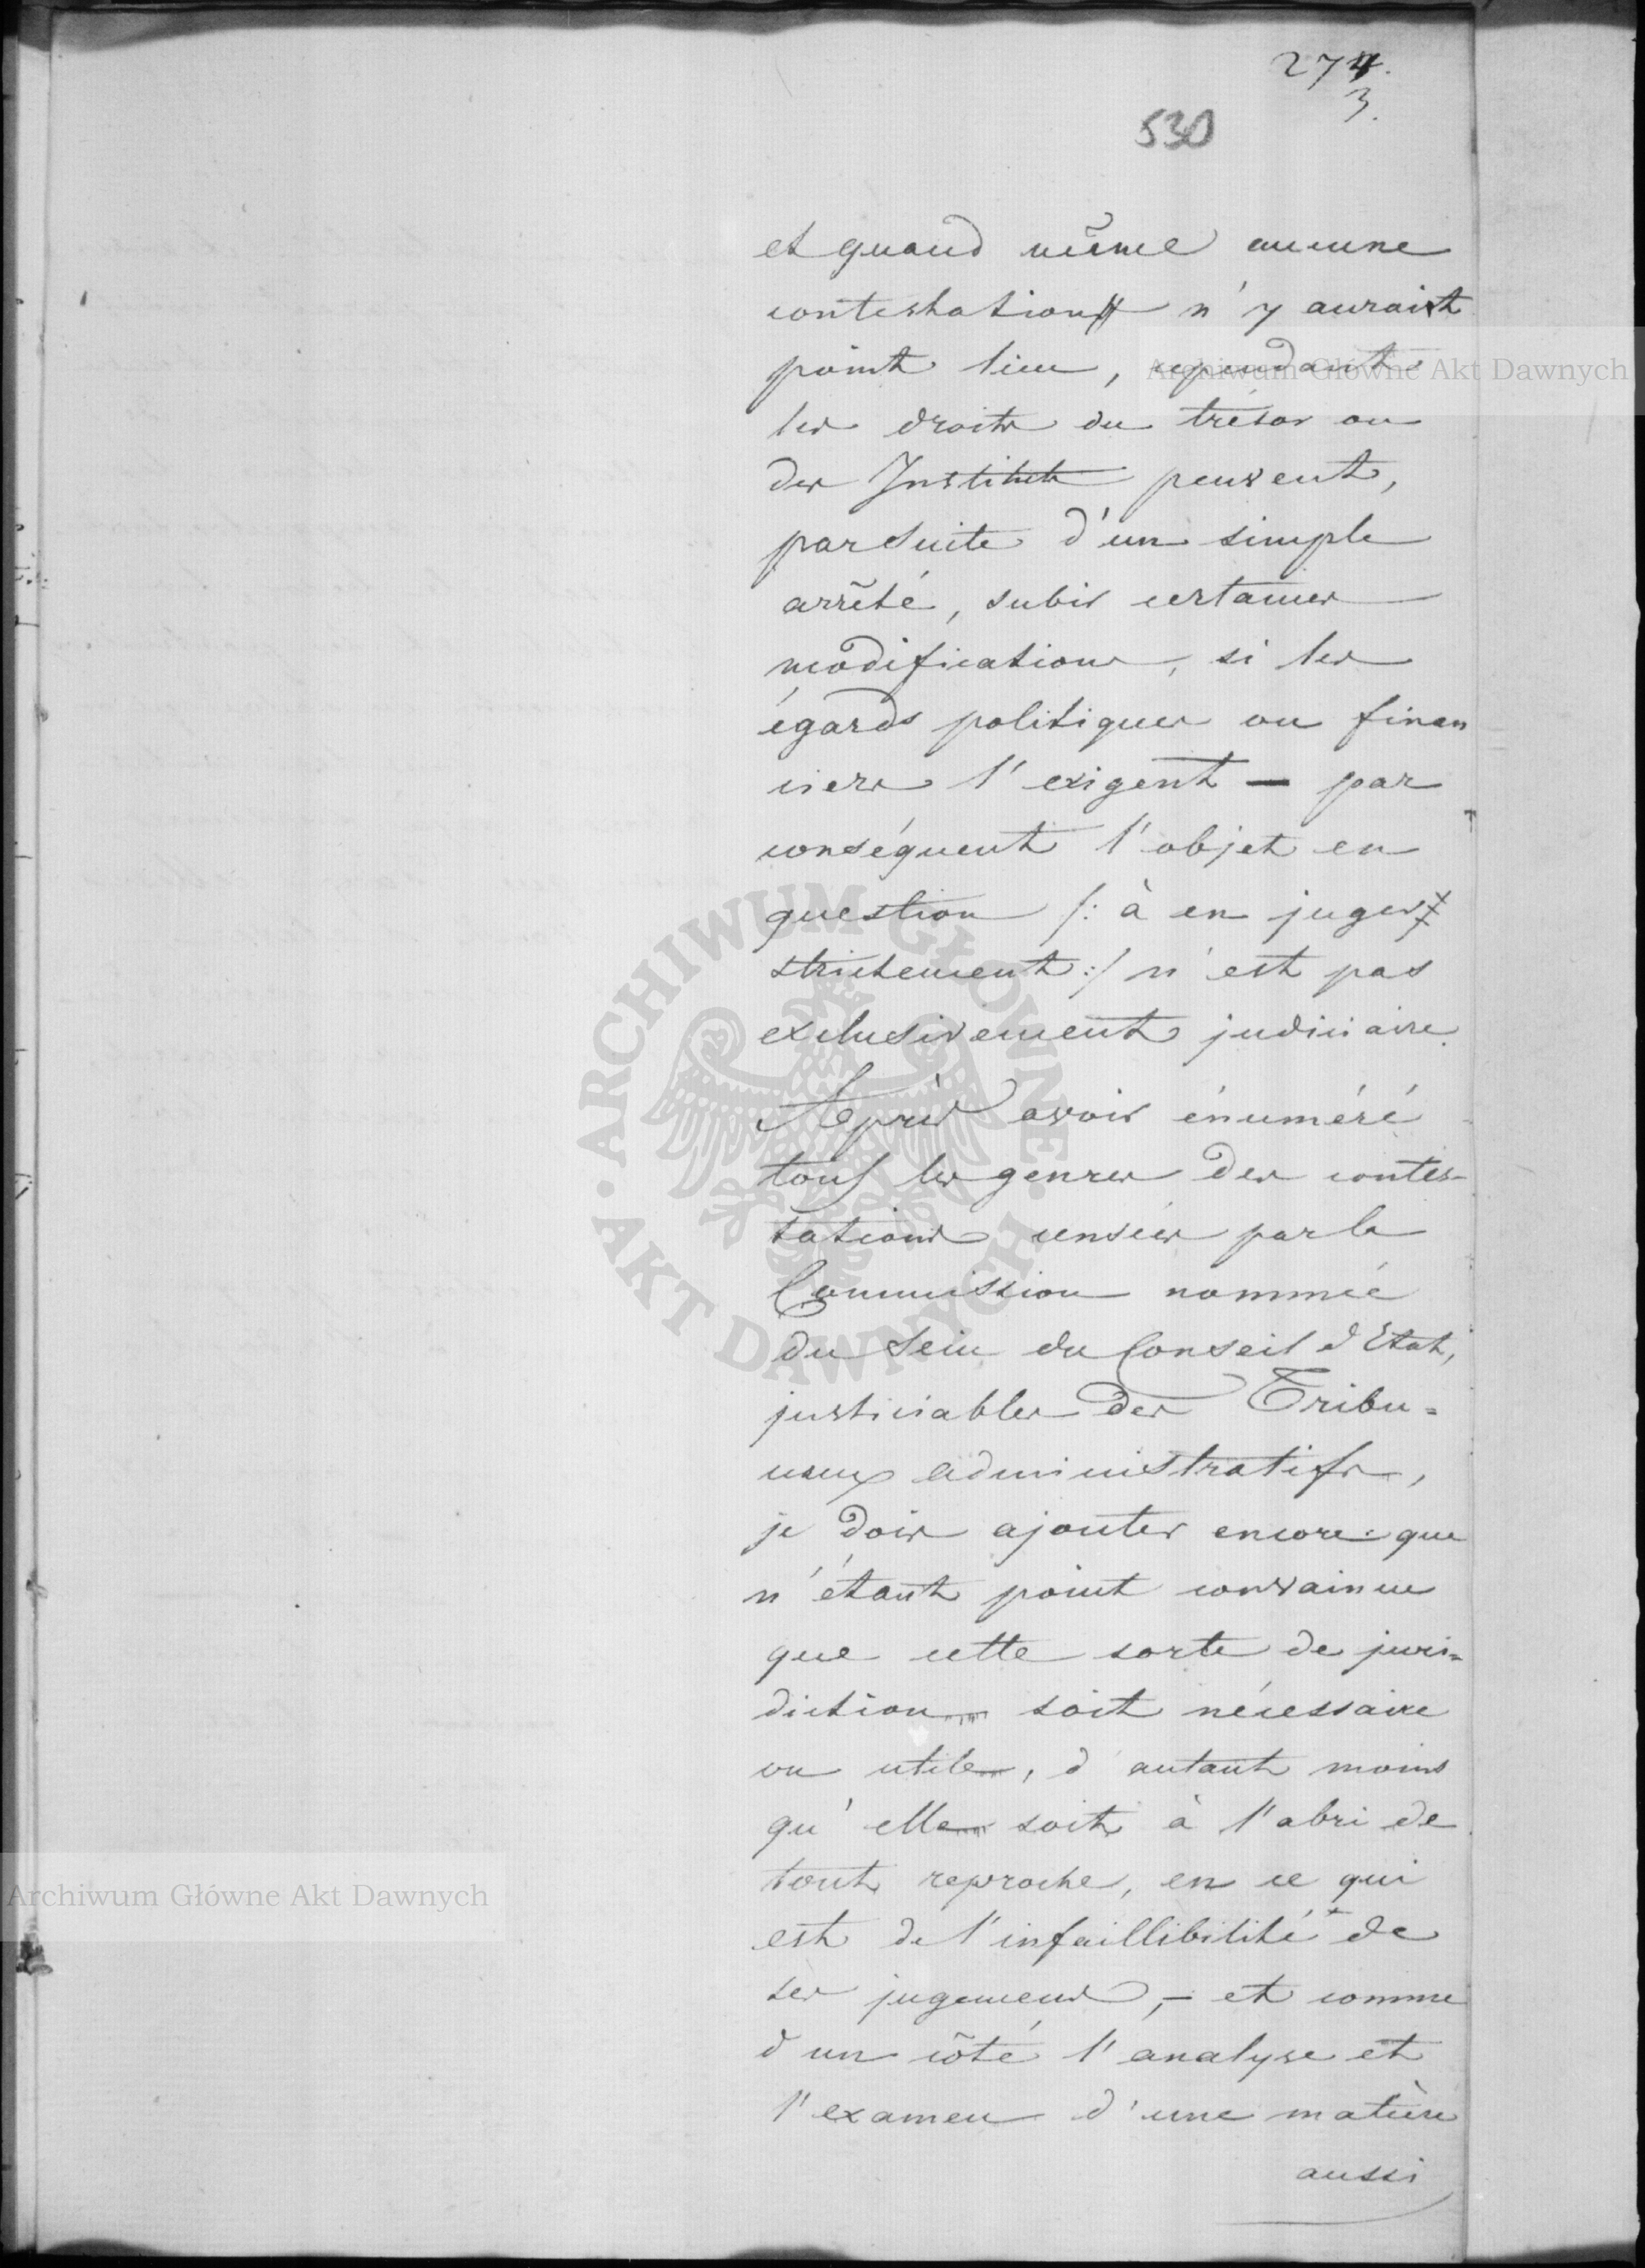 274.
3.
530
et quand même aucune
contestation n'y aurait
point lieu, cependant
les droits du trésor ou
des Instituts peuvent,
par suite d'un simple
arrêté, subir certaines
modifications, si les
égards politiques ou finan
ciers l'exigent — par
conséquent l'objet en
question /: à en juger
strictement :/ n'est pas
exclusivement judiciaire.
Après avoir énuméré
tous les genres des contes-
tations censées par la
Commission nommée
du sein du Conseil d'Etat,
justiciables des Tribu=
naux administratifs,
je dois ajouter encore: que
n'étant point convaincu
que cette sorte de juri=
diction soit nécessaire
ou utile, d'autant moins
qu'elle soit à l'abri de
tout reproche, en ce qui
est de l'infaillibilité de
ses jugemens, — et comme
d'un côté l'analyse et
l'examen d'une matière
aussi
Archiwum Główne Akt Dawnych
Archiwum Główne Akt Dawnych
ARCHIWUM GŁÓWNE · AKT DAWNYCH ·